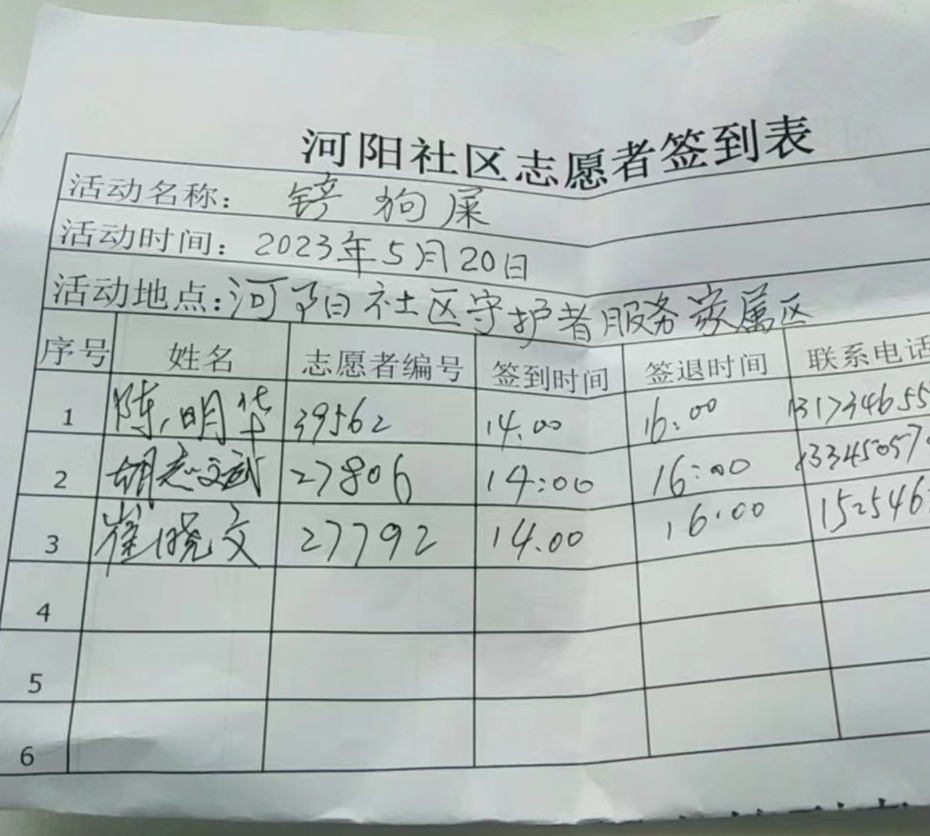 河阳社区志愿者签到表
活动名称: 铲狗屎
活动时间: 2023年5月20日
活动地点:河阳社区守护者服务家属区
序号 姓名 志愿者编号 签到时间 签退时间 联系电话
1 陈明华 39562 14.00 16:00 131734655
2 胡志文武 27806 14:00 16:00 13345057
3 崔晓文 27792 14.00 16:00 152546
4
5
6